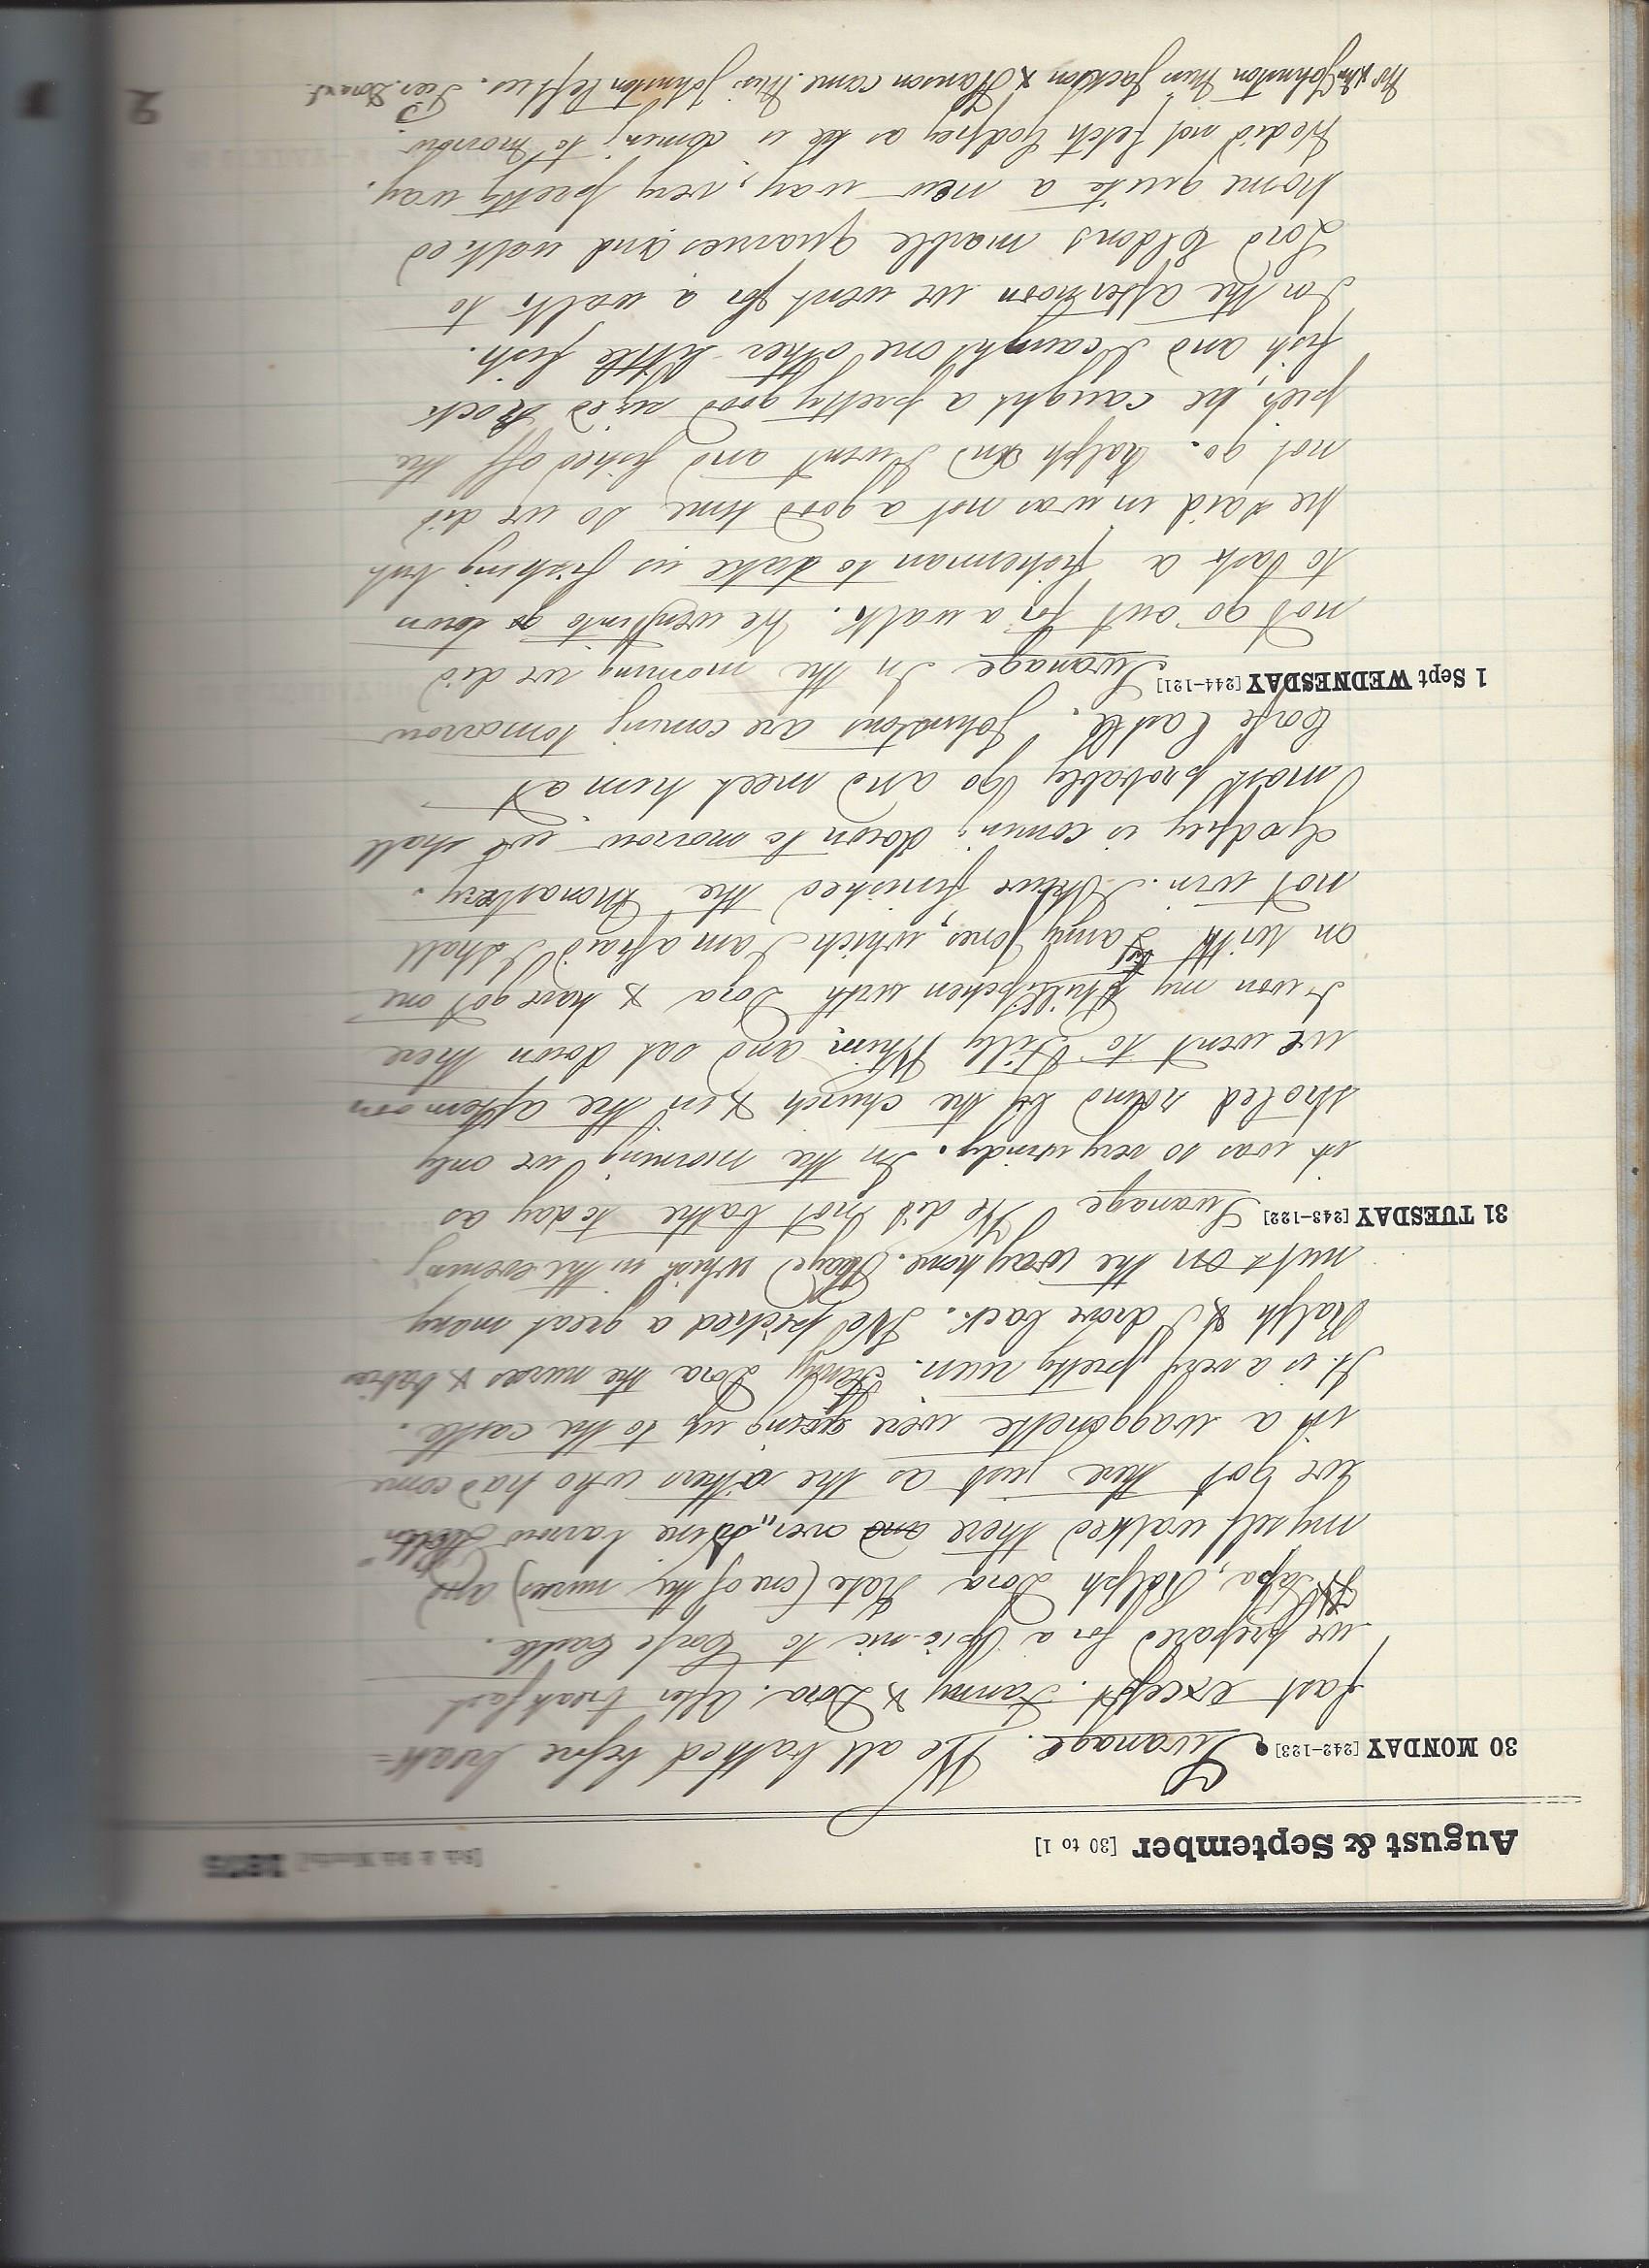 August & September [30 to 1] 1875
30 MONDAY [242-123] Swanage. We all bathed before break=
fast except Fanny & Dora. After breakfast
we prepared for a Pic-nic to Corfe Castle.
Papa, Ralph Dora Kate (one of the nurses) and
myself walked there and over, Nine barrow
we got there just as the others who had come
in a waggonette were going up to the castle.
It is a very pretty ruin. Fanny Dora the nurses & babies
Ralph & I drove back. We picked a great many
nuts on the way home. Played whist in the evening
31 TUESDAY [243-122] Swanage We did not bathe today as
it was so very windy. In the morning we only
stroled round by the church & in the afternoon
we went to Tilly Whim and sat down there
I won my Phillipchen with Dora & have got one
on with Fanny Jones, which I am afraid I shall
not win. I have finished the "Monastery.
Godfrey is coming down to morrow we shall
most probably go and meet him at
Corfe Castle. Johnstons are coming tomorrow
1 Sept WEDNESDAY [244-121] Swanage In the morning we did
not go out for a walk. We went into town
to ask a fisherman to take us fishing but
he said in was not a good time so we did
not go. Ralph and I went and fished off the
pier, he caught a pretty good sized Rock
fish and I caught one other little fish.
In the afternoon we went for a walk to
Lord Eldons marble quarries and walked
home quite a new way, very pretty way.
We did not fetch Godfrey as he is coming to morrow
Johnston Miss Jackson & Hanson came. Miss Johnston left us.
2